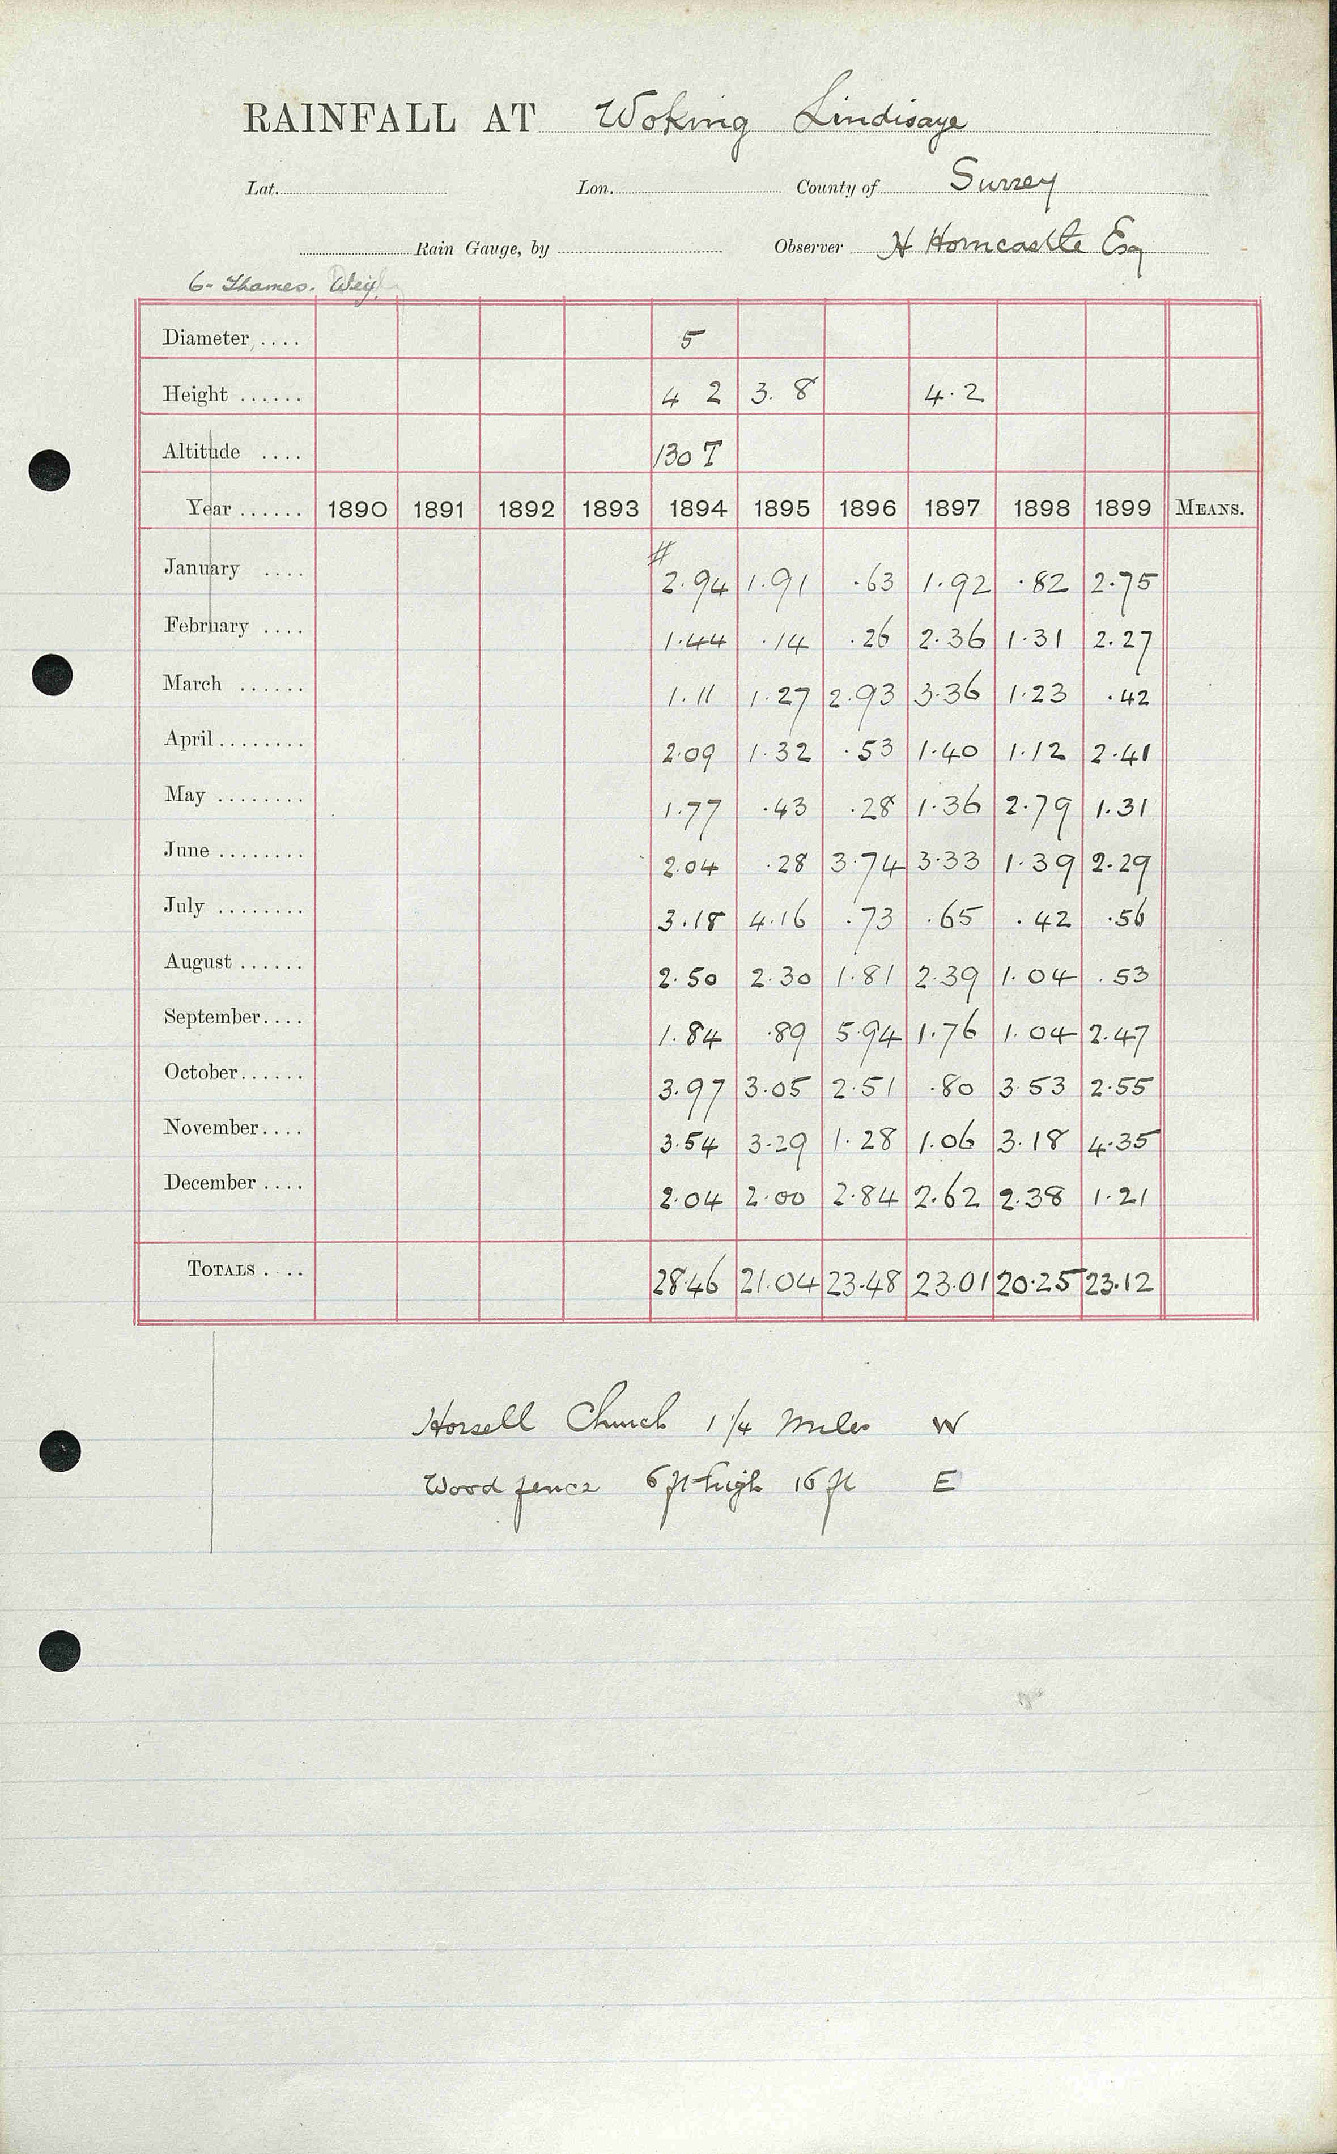 RAINFALL AT Woking Lindisaye
Lat. Lon. County of Surrey
Rain Gauge, by Observer H Horncastle Esq
6- Thames. Wey
Diameter .... 5
Height ...... 4 2 3. 8 4.2
Altitude .... 130 T
Year ...... 1890 1891 1892 1893 1894 1895 1896 1897 1898 1899 MEANS.
#
January .... 2.94 1.91 .63 1.92 .82 2.75
February .... 1.44 .14 .26 2.36 1.31 2.27
March ...... 1.11 1.27 2.93 3.36 1.23 .42
April ........ 2.09 1.32 .53 1.40 1.12 2.41
May ........ 1.77 .43 .28 1.36 2.79 1.31
June ........ 2.04 .28 3.74 3.33 1.39 2.29
July ........ 3.18 4.16 .73 .65 .42 .56
August ...... 2.50 2.30 1.81 2.39 1.04 .53
September.... 1.84 .89 5.94 1.76 1.04 2.47
October...... 3.97 3.05 2.51 .80 3.53 2.55
November.... 3.54 3.29 1.28 1.06 3.18 4.35
December .... 2.04 2.00 2.84 2.62 2.38 1.21
TOTALS .... 28.46 21.04 23.48 23.01 20.25 23.12
Horsell Church 1 1/4 Miles W
Wood fence 6 ft high 16 ft E